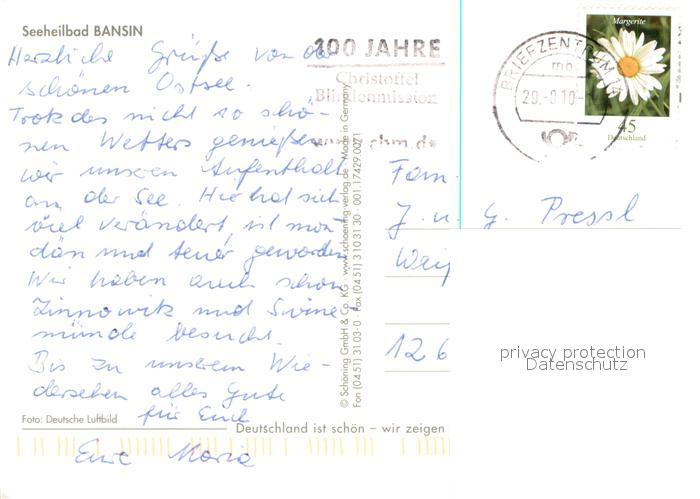 Seeheilbad BANSIN
Herzliche Grüße von der
schönen Ostsee.
Trotz des nicht so schö-
nen Wetters genießen
wir unseren Aufenthalt
an der See. Hier hat sich
viel verändert, ist mo-
dän und teuer geworden
Wir haben auch schon
Zinnowitz und Swine-
münde besucht.
Bis zu unserem Wie-
dersehen alles Gute
für Euch
Eure Maria
Foto: Deutsche Luftbild
100 JAHRE
Christoffel
Blindenmission
www.cbm.de
© Schöning GmbH & Co. KG · www.schoening-verlag.de · Made in Germany
Fon (0451) 31 03-0 · Fax (0451) 3103130 · 001.17429.0071
BRIEFZENTRUM
mb
29.-8.10
Margerite
45
Deutschland
Fam.
J. u. G. Pressl
Wei
126
privacy protection
Datenschutz
Deutschland ist schön – wir zeigen